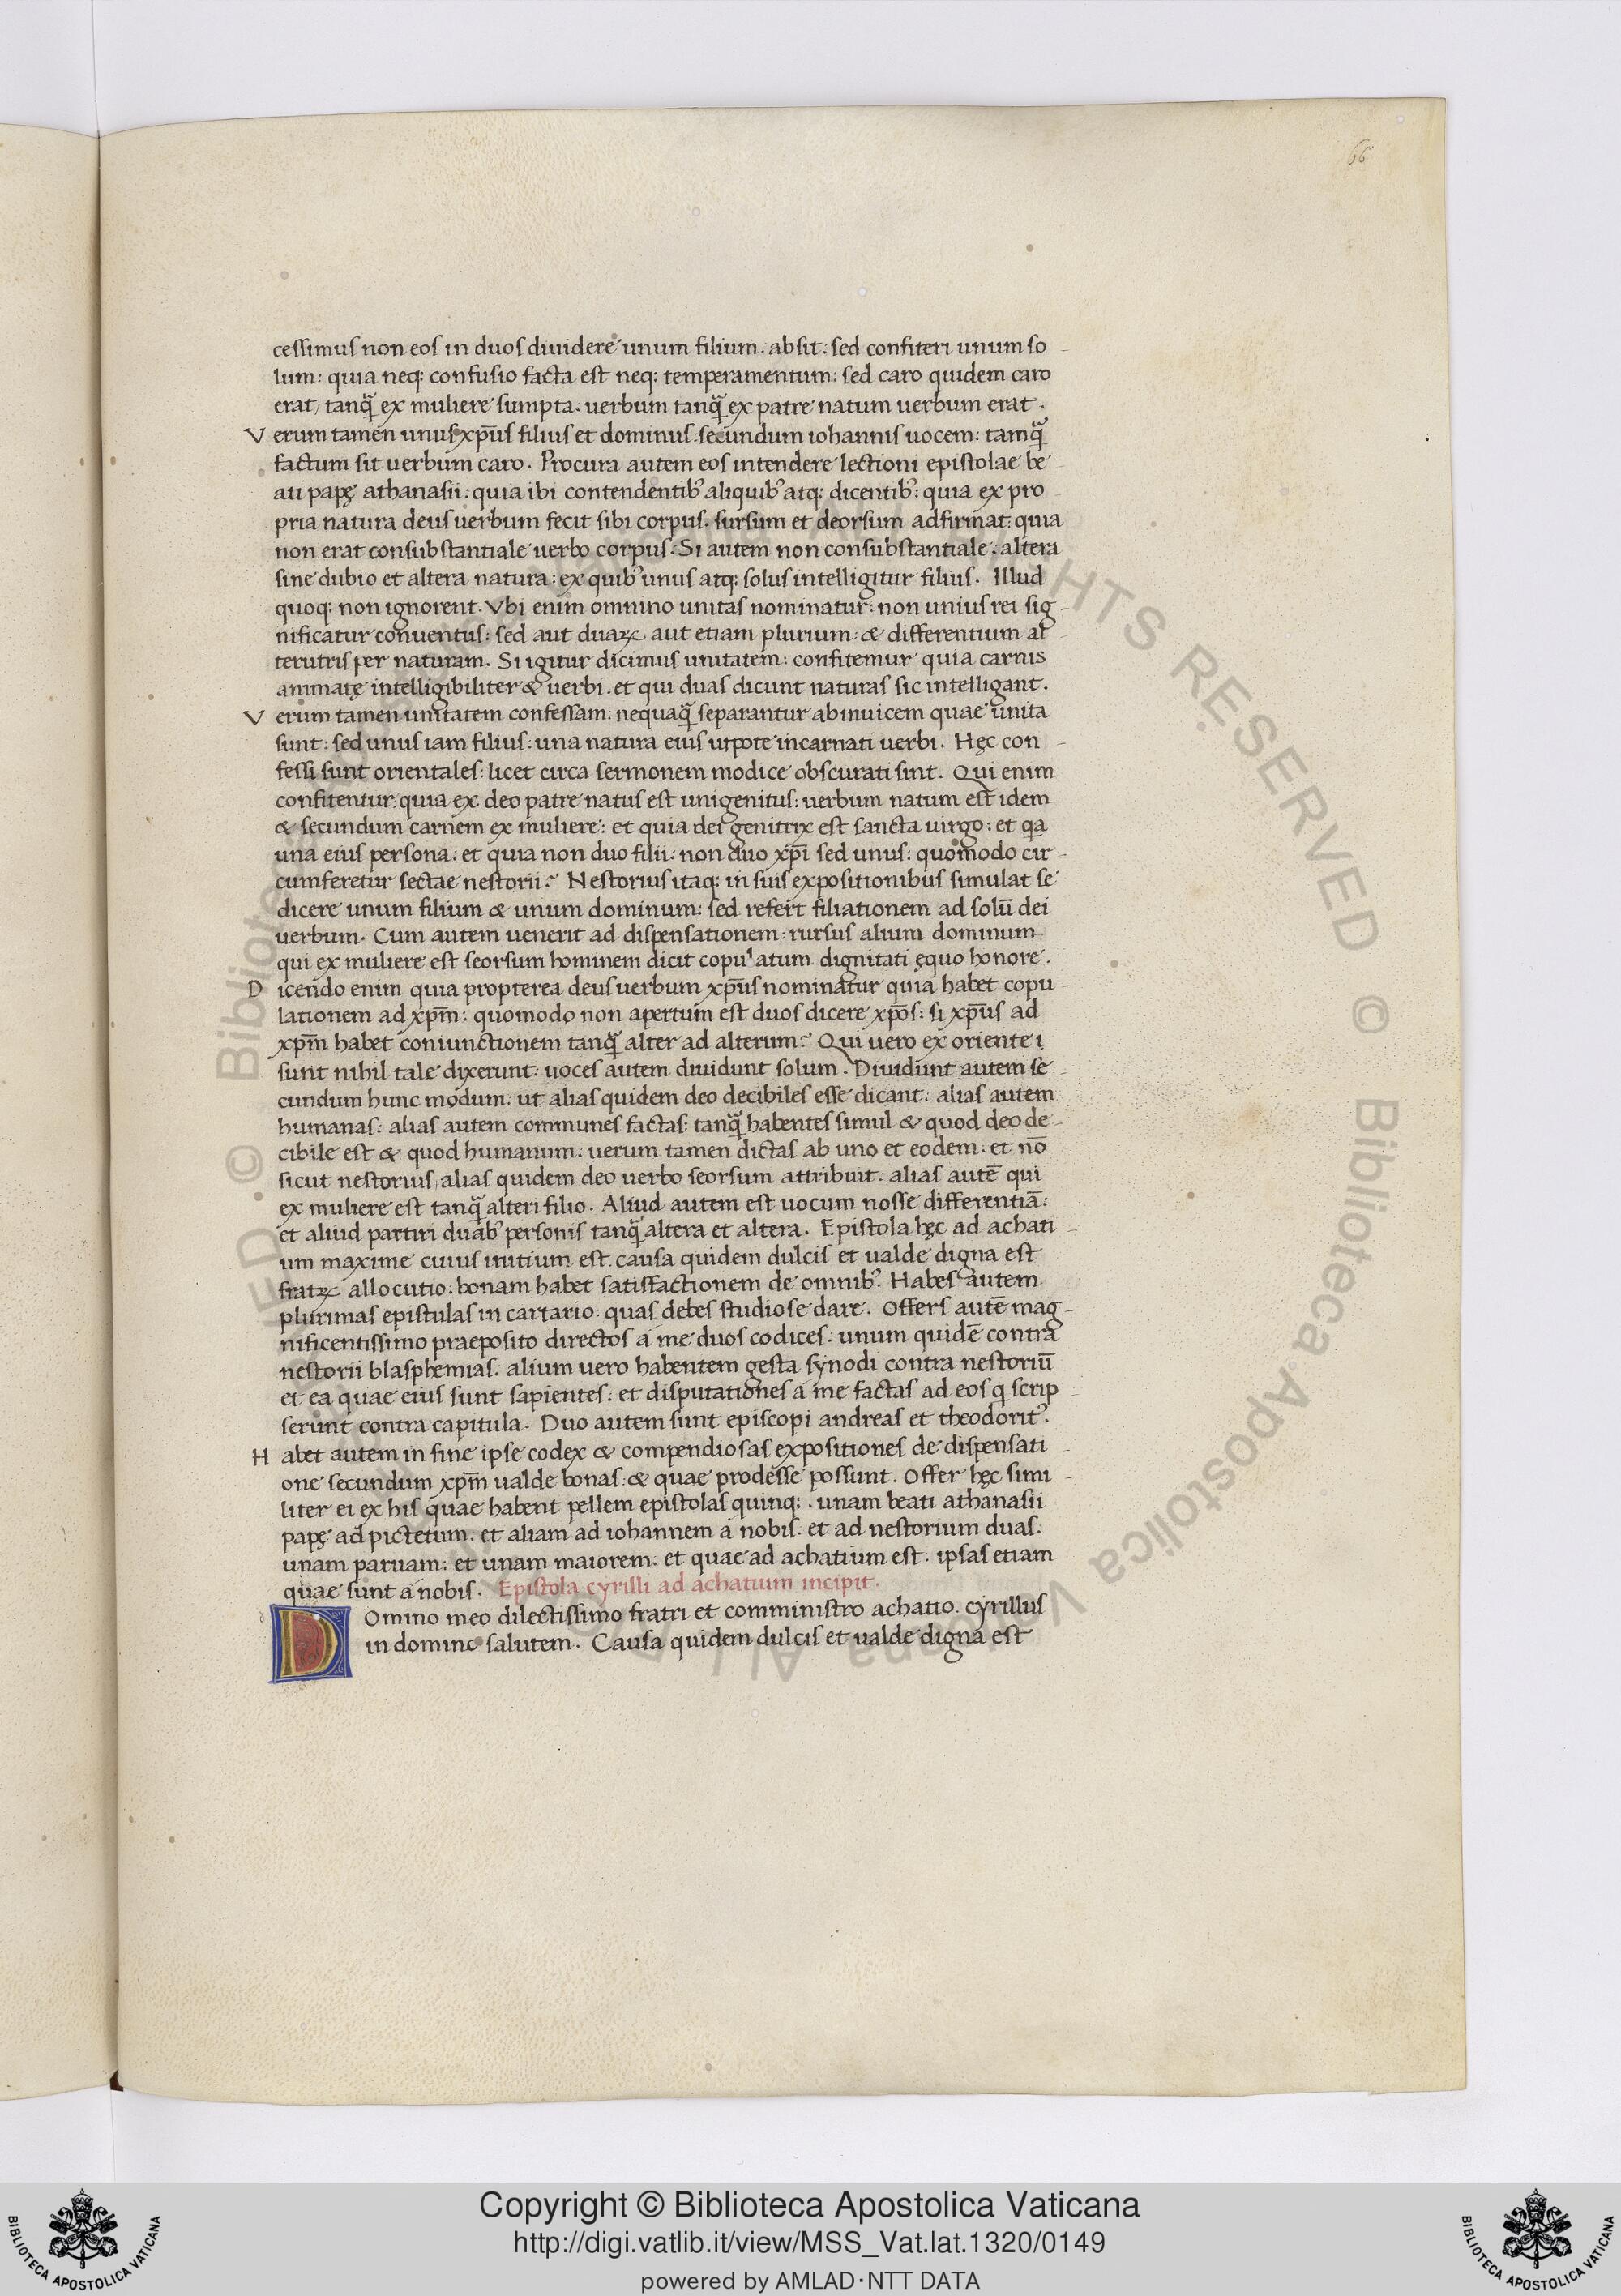 66
cessimus non eos in duos diuidere unum filium. absit: sed confiteri unum so-
lum: quia neq; confusio facta est neq; temperamentum: sed caro quidem caro
erat, tanq̃ ex muliere sumpta. uerbum tanq̃ ex patre natum uerbum erat.
Verum tamen unus xp̅us filius et dominus: secundum iohannis uocem: tamq̃
factum sit uerbum caro. Procura autem eos intendere lectioni epistolae be-
ati papę athanasii: quia ibi contendentib᾽ aliquib᾽ atq; dicentib᾽: quia ex pro-
pria natura deus uerbum fecit sibi corpus: sursum et deorsum adfirmat: quia
non erat consubstantiale uerbo corpus. Si autem non consubstantiale: altera
sine dubio et altera natura: ex quib᾽ unus atq; solus intelligitur filius. Illud
quoq; non ignorent. Vbi enim omnino unitas nominatur: non unius rei sig-
nificatur conuentus: sed aut duaꝝ aut etiam plurium: & differentium al-
terutris per naturam. Si igitur dicimus unitatem: confitemur quia carnis
animatę intelligibiliter & uerbi. et qui duas dicunt naturas sic intelligant.
Verum tamen unitatem confessam: nequaq̃ separantur abinuicem quae unita
sunt: sed unus iam filius: una natura eius utpote incarnati uerbi. Hęc con-
fessi sunt orientales: licet circa sermonem modice obscurati sint. Qui enim
confitentur: quia ex deo patre natus est unigenitus: uerbum natum est idem
& secundum carnem ex muliere: et quia dei genitrix est sancta uirgo: et qa
una eius persona: et quia non duo filii: non duo xp̅i sed unus: quomodo cir-
cumferetur sectae nestorii? Nestorius itaq; in suis expositionibus simulat se
dicere unum filium & unum dominum: sed refert filiationem ad solū dei
uerbum. Cum autem uenerit ad dispensationem: rursus alium dominum
qui ex muliere est seorsum hominem dicit copulatum dignitati ęquo honore.
Dicendo enim quia propterea deus uerbum xp̅us nominatur quia habet copu-
lationem ad xp̅m: quomodo non apertum est duos dicere xp̅os: si xp̅us ad
xp̅m habet coniunctionem tanq̃ alter ad alterum? Qui uero ex oriente i
sunt nihil tale dixerunt: uoces autem diuidunt solum. Diuidunt autem se-
cundum hunc modum: ut alias quidem deo decibiles esse dicant: alias autem
humanas: alias autem communes factas: tanq̃ habentes simul & quod deo de-
cibile est & quod humanum: uerum tamen dictas ab uno et eodem: et nō
sicut nestorius, alias quidem deo uerbo seorsum attribuit: alias autē qui
ex muliere est tanq̃ alteri filio. Aliud autem est uocum nosse differentiā:
et aliud partiri duab᾽ personis tanq̃ altera et altera. Epistola hęc ad achati-
um maxime cuius initium est. causa quidem dulcis et ualde digna est
fratꝝ allocutio: bonam habet satisfactionem de omnib᾽. Habes autem
plurimas epistulas in cartario: quas debes studiose dare. Offers autē mag-
nificentissimo praeposito directos a me duos codices: unum quidē contra
nestorii blasphemias: alium uero habentem gesta synodi contra nestoriū
et ea quae eius sunt sapientes: et disputationes a me factas ad eos q scrip-
serunt contra capitula. Duo autem sunt episcopi andreas et theodorit᾽.
Habet autem in fine ipse codex & compendiosas expositiones de dispensati-
one secundum xp̅m ualde bonas: & quae prodesse possunt. Offer hęc simi-
liter ei ex his quae habent pellem epistolas quinq;. unam beati athanasii
papę ad pictetum: et aliam ad iohannem a nobis: et ad nestorium duas:
unam paruam: et unam maiorem: et quae ad achatium est: ipsas etiam
quae sunt a nobis. Epistola cyrilli ad achatium incipit.
Domino meo dilectissimo fratri et comministro achatio. cyrillus
in domino salutem. Causa quidem dulcis et ualde digna est
Copyright © Biblioteca Apostolica Vaticana
http://digi.vatlib.it/view/MSS_Vat.lat.1320/0149
powered by AMLAD·NTT DATA
BIBLIOTECA APOSTOLICA VATICANA
BIBLIOTECA APOSTOLICA VATICANA